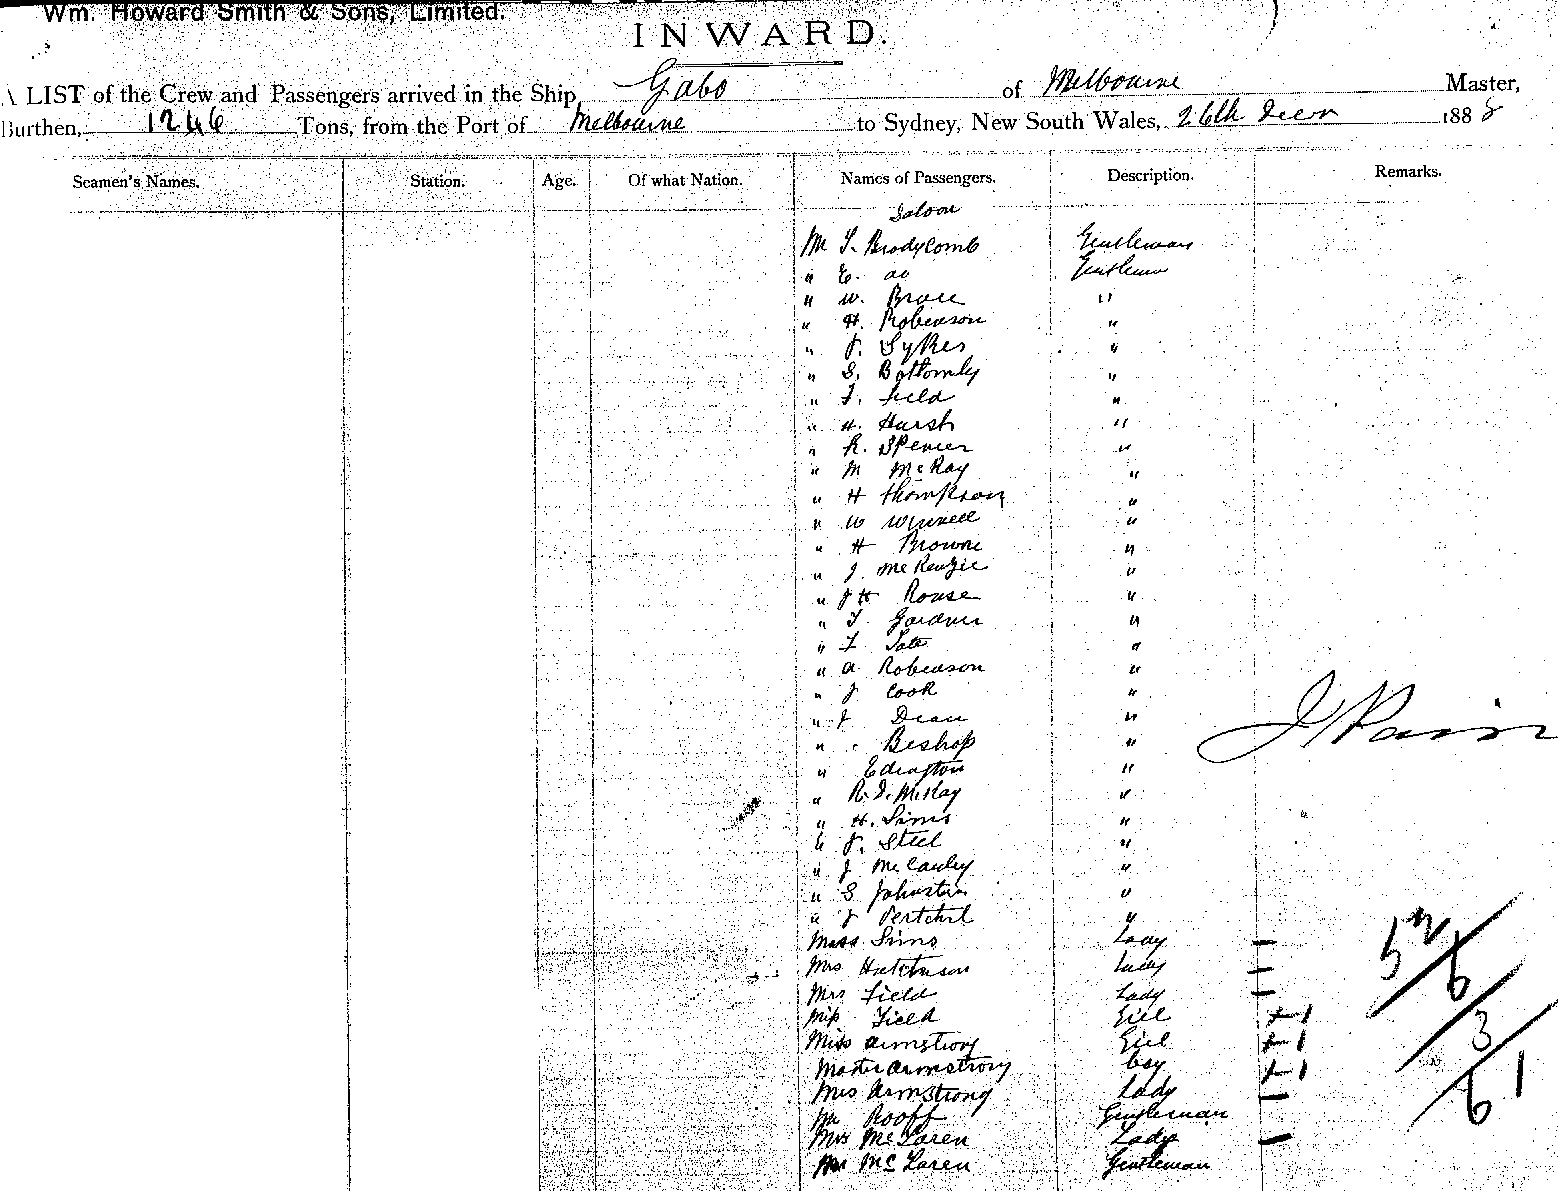 Wm. Howard Smith & Sons, Limited.
INWARD.
LIST of the Crew and Passengers arrived in the Ship, Gabo of Melbourne Master,
Burthen, 1246 Tons, from the Port of Melbourne to Sydney, New South Wales, 26th Decr 1888
Seamen's Names. Station. Age. Of what Nation. Names of Passengers. Description. Remarks.
Saloon
Mr T. Brodycomb Gentleman
" E. do Gentleman
" W. Bruce "
" H. Robinson "
" J. Sykes "
" S. Bottomly "
" F. Field "
" H. Hursh "
" R. Spencer "
" M McKay "
" H Thompson "
" W "
" H Browne "
" J. McKenzie "
" J H Rouse "
" T. Gardner "
" T Tate "
" A Robinson "
" J Cook "
" J Dean "
" Bishop "
" Edington "
" R. J. McKay "
" H. Sims "
" J. Steel "
" J McCauley "
" S Johnston "
" J "
Miss Sims Lady –
Mrs Hutchinson Lady –
Mrs Field Lady –
Miss Field Girl + 1
Miss Armstrong Girl + 1
Master Armstrong boy + 1
Mrs Armstrong Lady –
Mr Rooff Gentleman
Mrs McLaren Lady –
Mr McLaren Gentleman
6
3
6 1